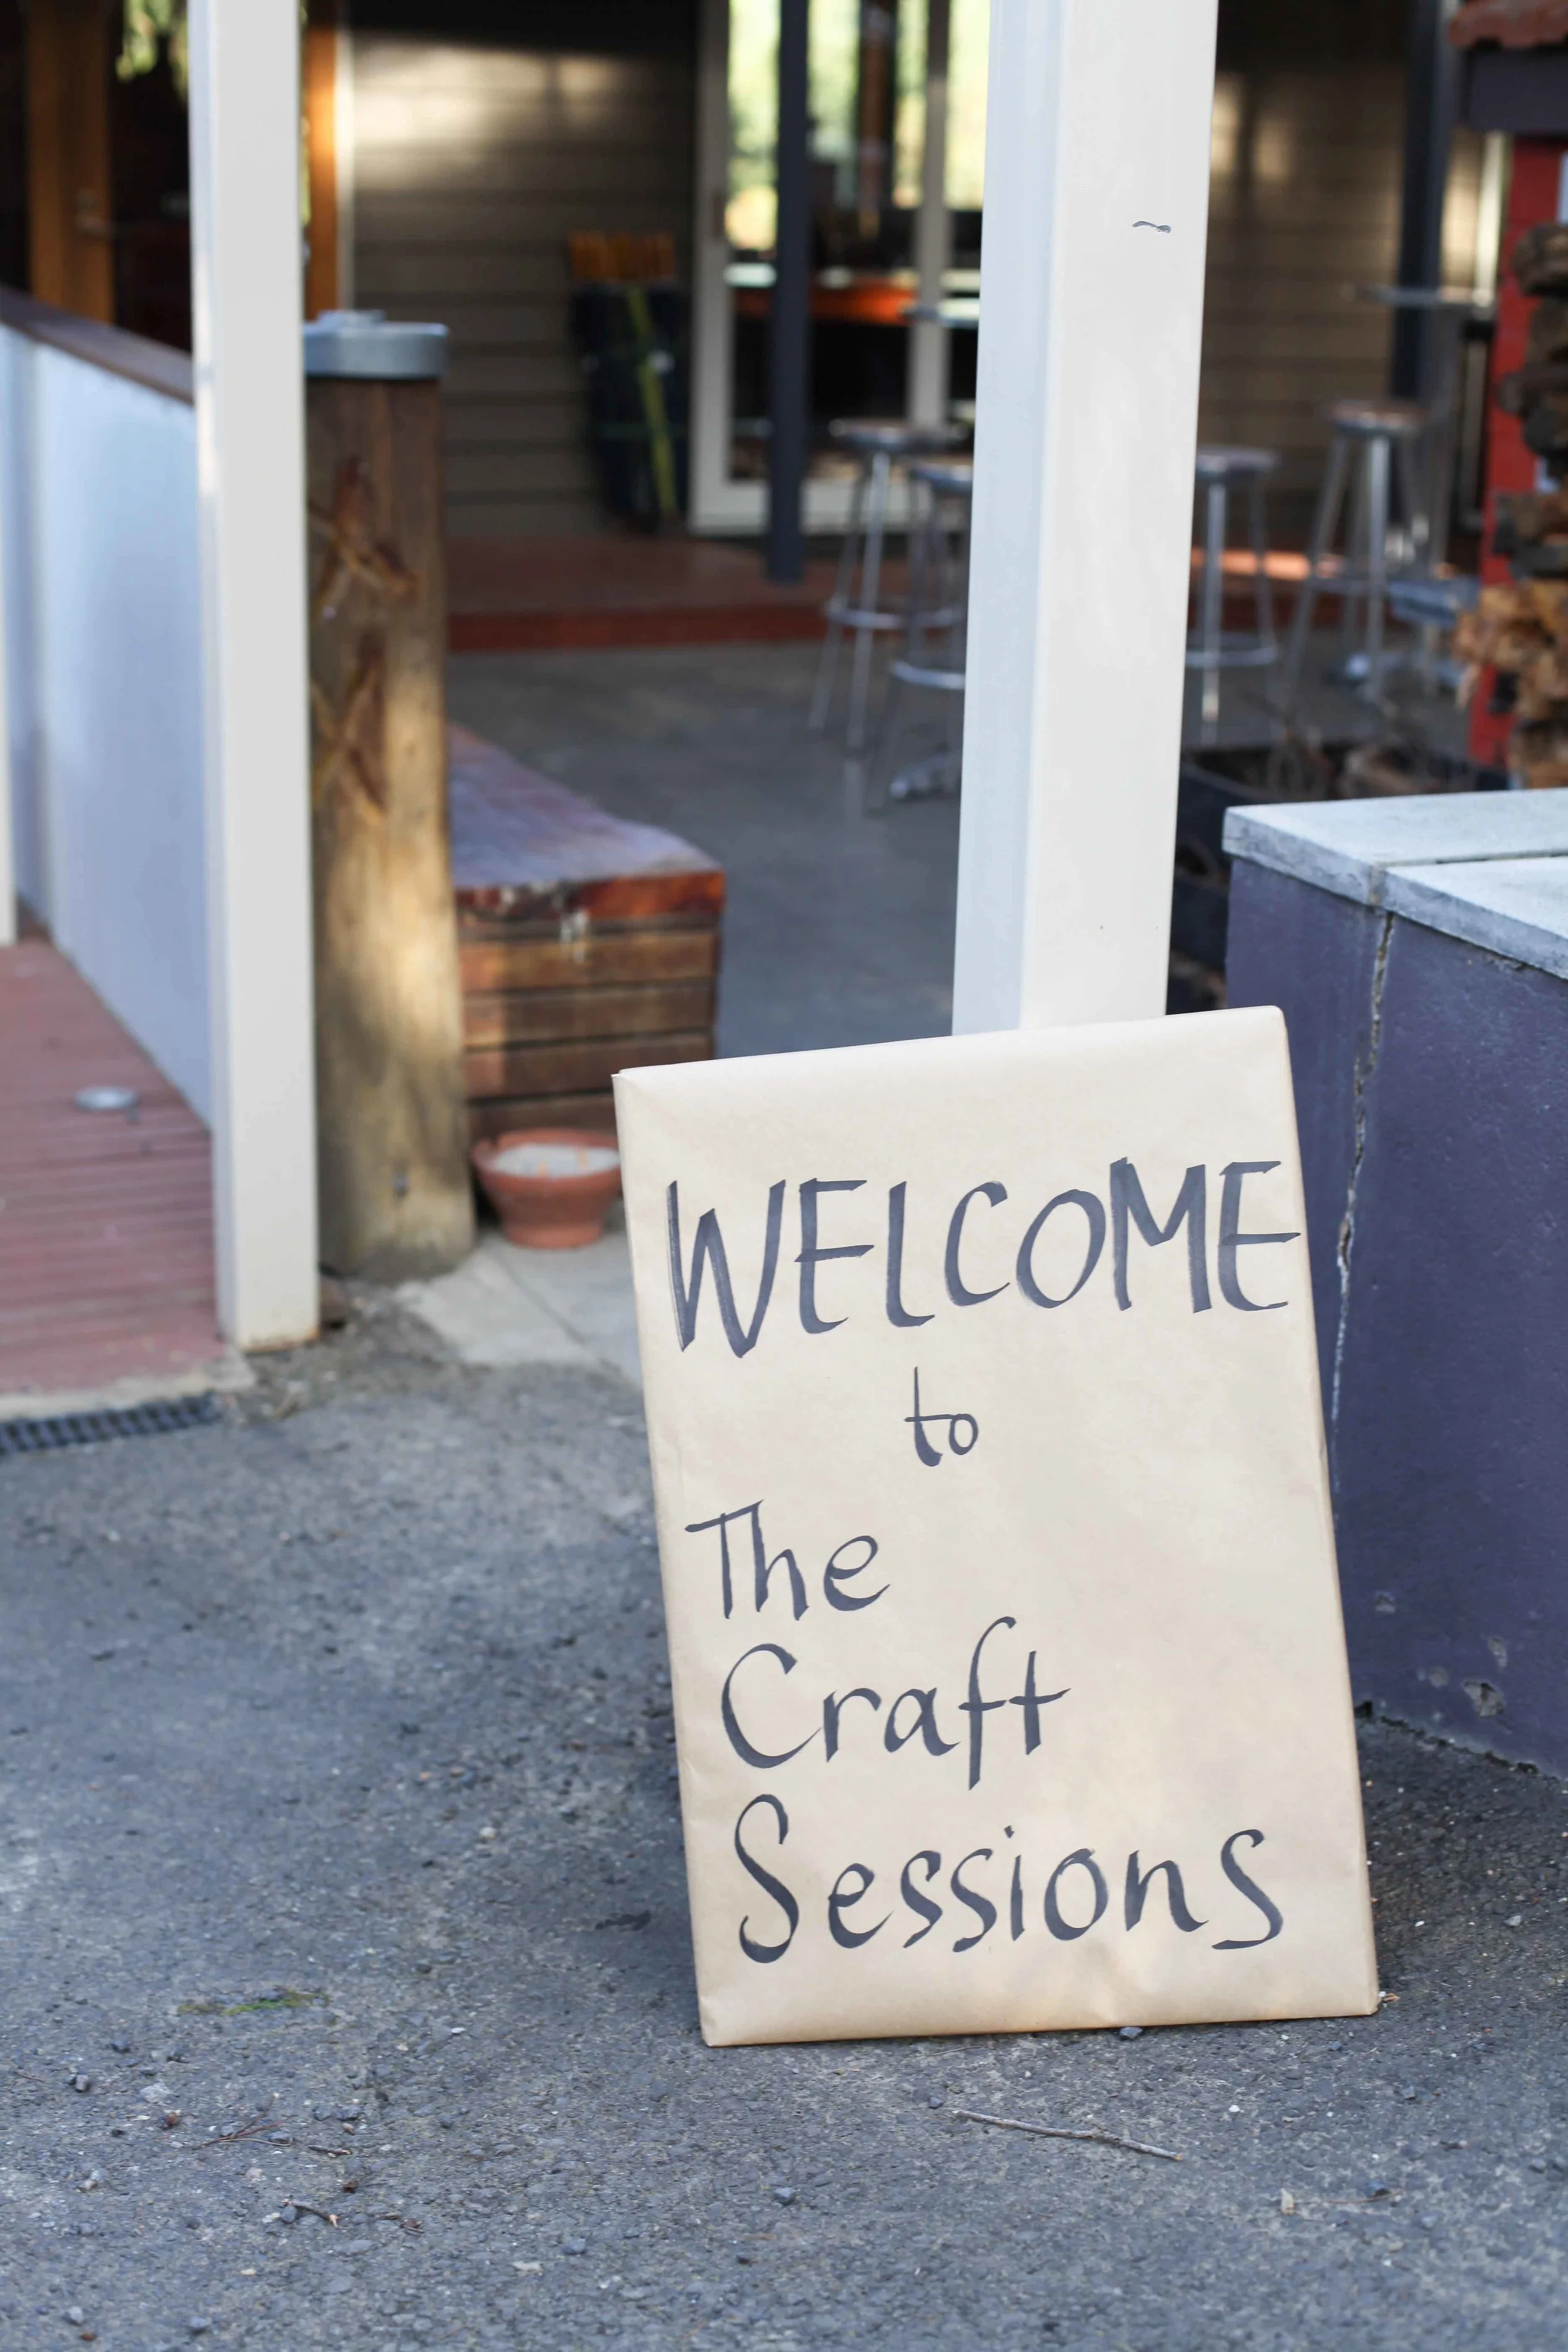 WELCOME
to
The
Craft
Sessions